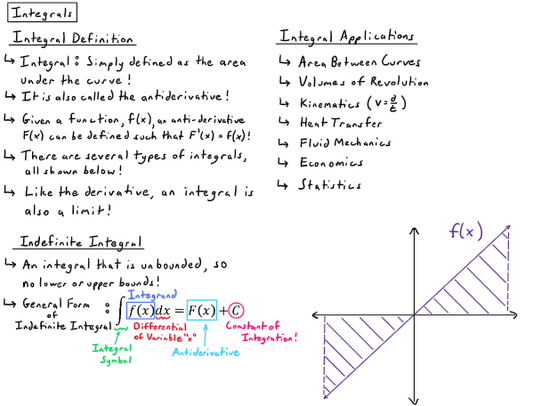 Integrals
Integral Definition
↳ Integral : Simply defined as the area
under the curve!
↳ It is also called the antiderivative!
↳ Given a function, f(x), an anti-derivative
F(x) can be defined such that F'(x) = f(x)!
↳ There are several types of integrals,
all shown below!
↳ Like the derivative, an integral is
also a limit!
Indefinite Integral
↳ An integral that is unbounded, so
no lower or upper bounds!
↳ General Form
of
Indefinite Integral :
Integrand
∫ f(x) dx = F(x) + C
Integral
Symbol
Differential
of Variable "x"
Antiderivative
Constant of
Integration!
Integral Applications
↳ Area Between Curves
↳ Volumes of Revolution
↳ Kinematics (v = d/t)
↳ Heat Transfer
↳ Fluid Mechanics
↳ Economics
↳ Statistics
f(x)